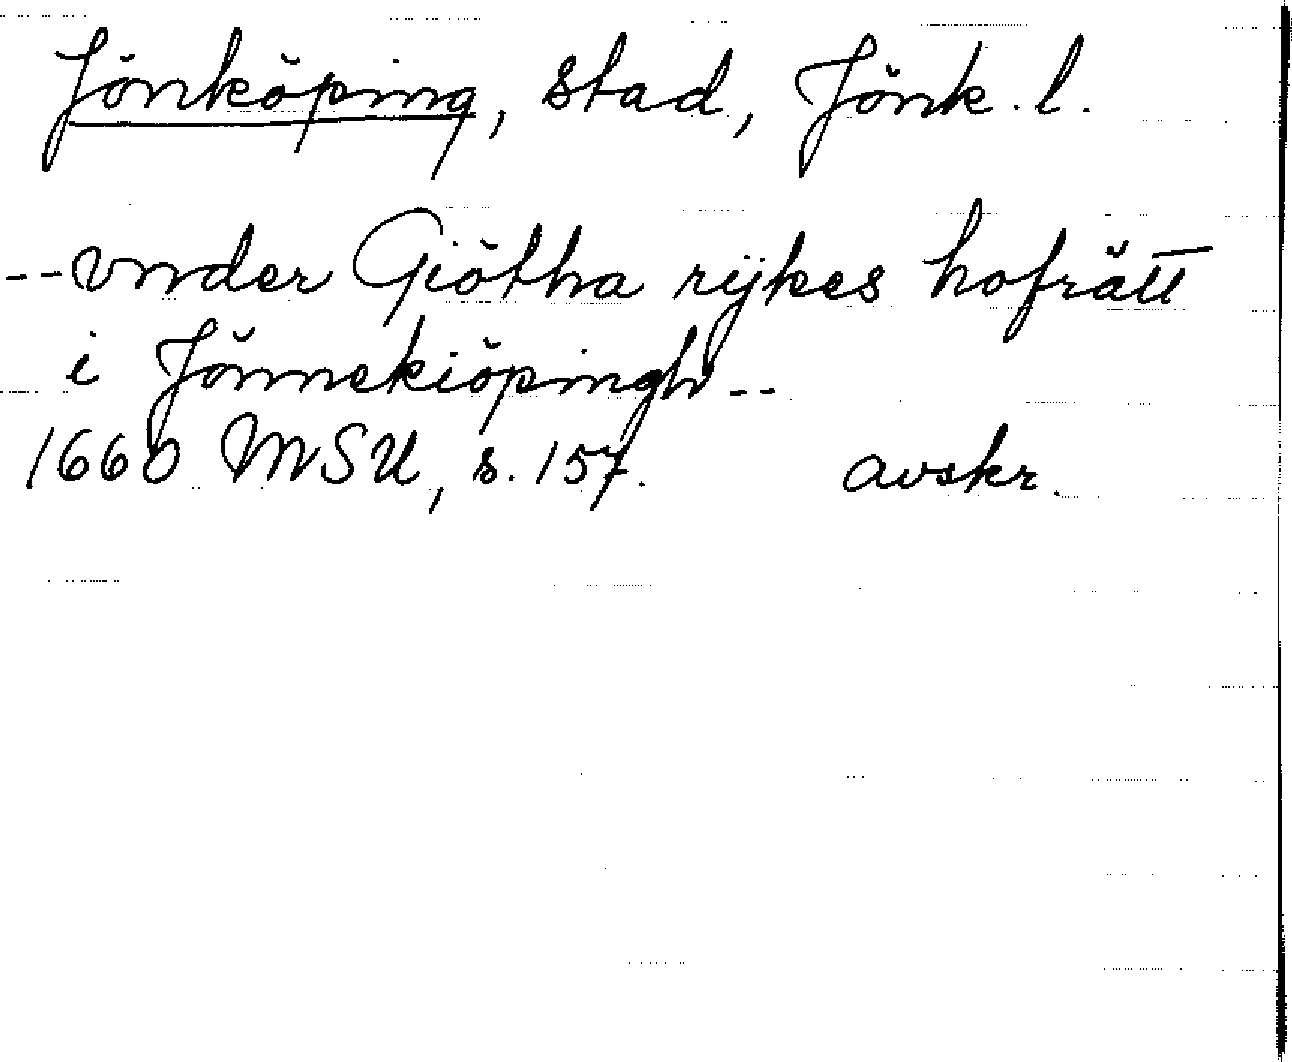 Jönköping, stad, Jönk. l.
-- vnder Giötha rijkes hofrätt
i Jönnekiöpingh --
1660 MSU, s. 157. avskr.